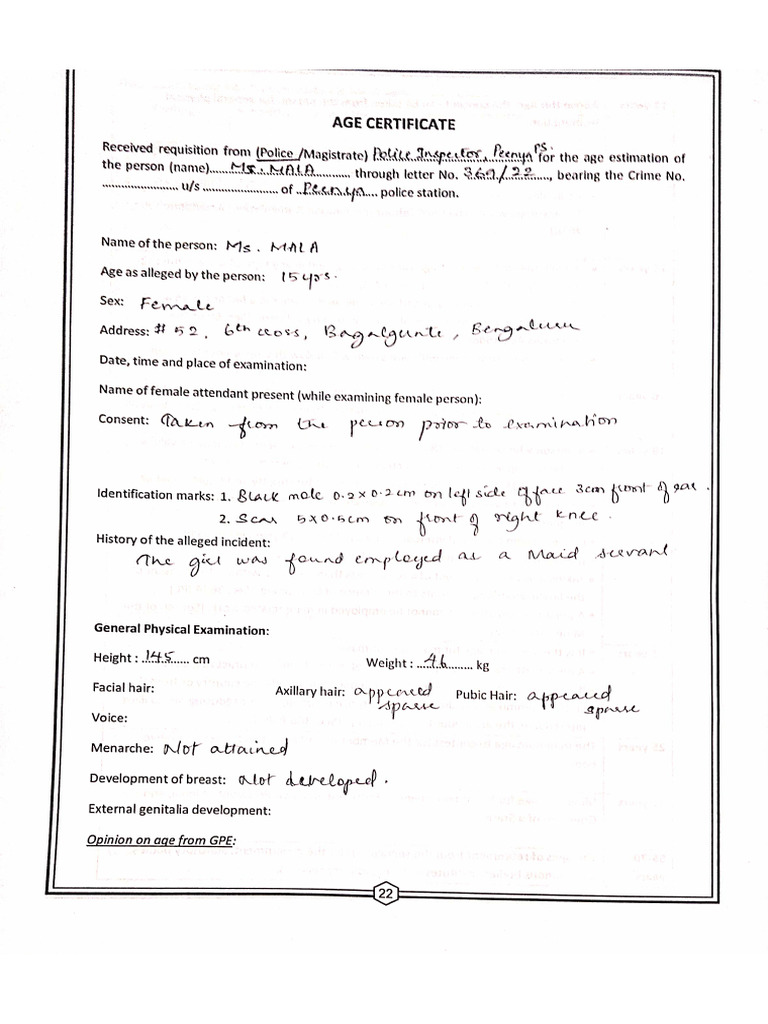 AGE CERTIFICATE
Received requisition from (Police /Magistrate) Police Inspector, Peenya PS. for the age estimation of
the person (name)......Ms. MALA.................. through letter No. 369/22....., bearing the Crime No.
......................... u/s ......................... of ..Peenya.... police station.
Name of the person: Ms. MALA
Age as alleged by the person: 15 yrs.
Sex: Female
Address: # 52, 6th cross, Bagalgunte, Bengaluru
Date, time and place of examination:
Name of female attendant present (while examining female person):
Consent: Taken from the person prior to examination
Identification marks: 1. Black mole 0.2 x 0.2 cm on left side of face 3cm front of ear.
2. Scar 5 x 0.5cm on front of right knee.
History of the alleged incident:
The girl was found employed as a Maid servant
General Physical Examination:
Height : ..145...... cm Weight : ...46......... kg
Facial hair: Axillary hair: appeared sparse Pubic Hair: appeared sparse
Voice:
Menarche: Not attained
Development of breast: Not developed.
External genitalia development:
Opinion on age from GPE:
22